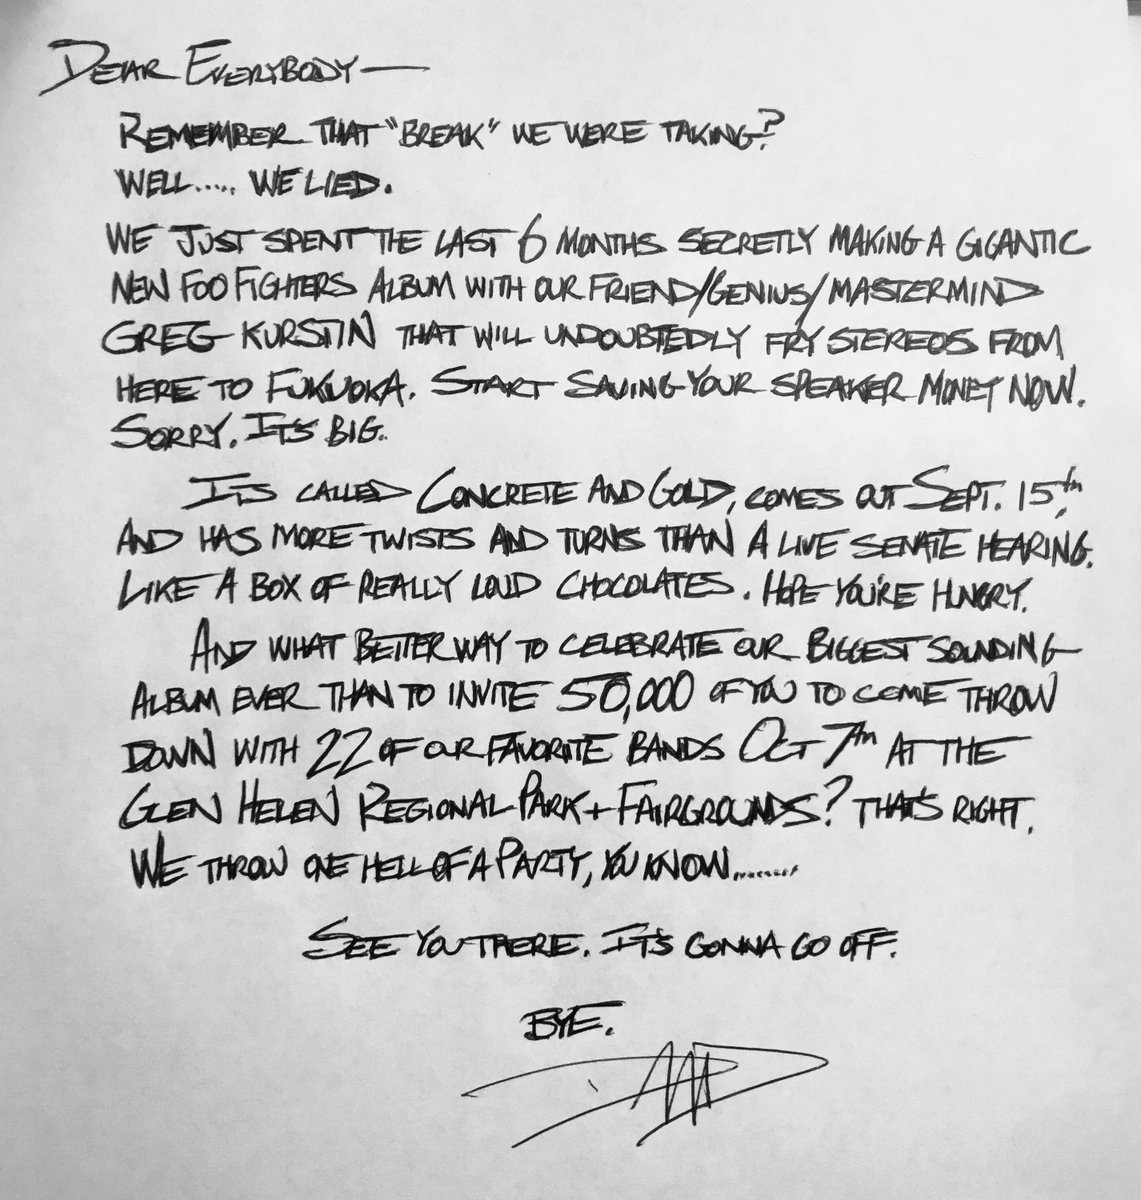 DEAR EVERYBODY—
REMEMBER THAT "BREAK" WE WERE TAKING?
WELL..... WE LIED.
WE JUST SPENT THE LAST 6 MONTHS SECRETLY MAKING A GIGANTIC
NEW FOO FIGHTERS ALBUM WITH OUR FRIEND/GENIUS/MASTERMIND
GREG KURSTIN THAT WILL UNDOUBTEDLY FRY STEREOS FROM
HERE TO FUKUOKA. START SAVING YOUR SPEAKER MONEY NOW.
SORRY. IT'S BIG.
ITS CALLED CONCRETE AND GOLD, COMES OUT SEPT. 15th,
AND HAS MORE TWISTS AND TURNS THAN A LIVE SENATE HEARING.
LIKE A BOX OF REALLY LOUD CHOCOLATES. HOPE YOU'RE HUNGRY.
AND WHAT BETTER WAY TO CELEBRATE OUR BIGGEST SOUNDING
ALBUM EVER THAN TO INVITE 50,000 OF YOU TO COME THROW
DOWN WITH 22 OF OUR FAVORITE BANDS OCT 7th AT THE
GLEN HELEN REGIONAL PARK + FAIRGROUNDS? THAT'S RIGHT.
WE THROW ONE HELL OF A PARTY, YOU KNOW........
SEE YOU THERE. IT'S GONNA GO OFF.
BYE.